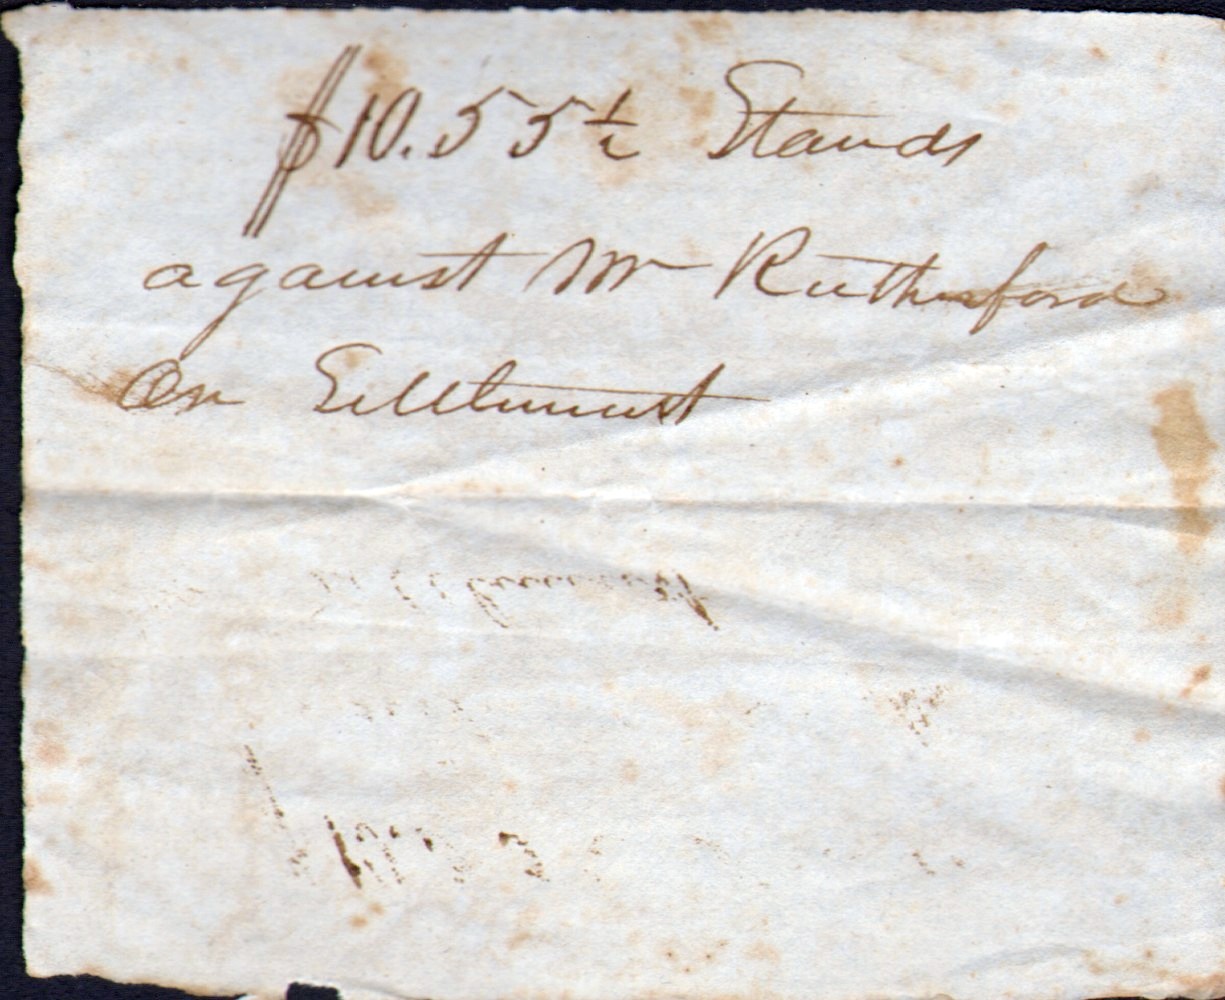 $10.55½ Stands
against Mr Rutherford
On Settlement